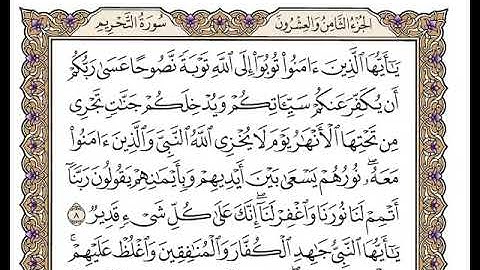 سُورَةُ التَّحْرِيمِ الجُزْءُ الثَّامِنُ وَالعِشْرُونَ
يَٰٓأَيُّهَا ٱلَّذِينَ ءَامَنُوا۟ تُوبُوٓا۟ إِلَى ٱللَّهِ تَوْبَةً نَّصُوحًا عَسَىٰ رَبُّكُمْ
أَن يُكَفِّرَ عَنكُمْ سَيِّـَٔاتِكُمْ وَيُدْخِلَكُمْ جَنَّٰتٍ تَجْرِى
مِن تَحْتِهَا ٱلْأَنْهَٰرُ يَوْمَ لَا يُخْزِى ٱللَّهُ ٱلنَّبِىَّ وَٱلَّذِينَ ءَامَنُوا۟
مَعَهُۥ ۖ نُورُهُمْ يَسْعَىٰ بَيْنَ أَيْدِيهِمْ وَبِأَيْمَٰنِهِمْ يَقُولُونَ رَبَّنَآ
أَتْمِمْ لَنَا نُورَنَا وَٱغْفِرْ لَنَآ ۖ إِنَّكَ عَلَىٰ كُلِّ شَىْءٍ قَدِيرٌ ٨
يَٰٓأَيُّهَا ٱلنَّبِىُّ جَٰهِدِ ٱلْكُفَّارَ وَٱلْمُنَٰفِقِينَ وَٱغْلُظْ عَلَيْهِمْ ۚ